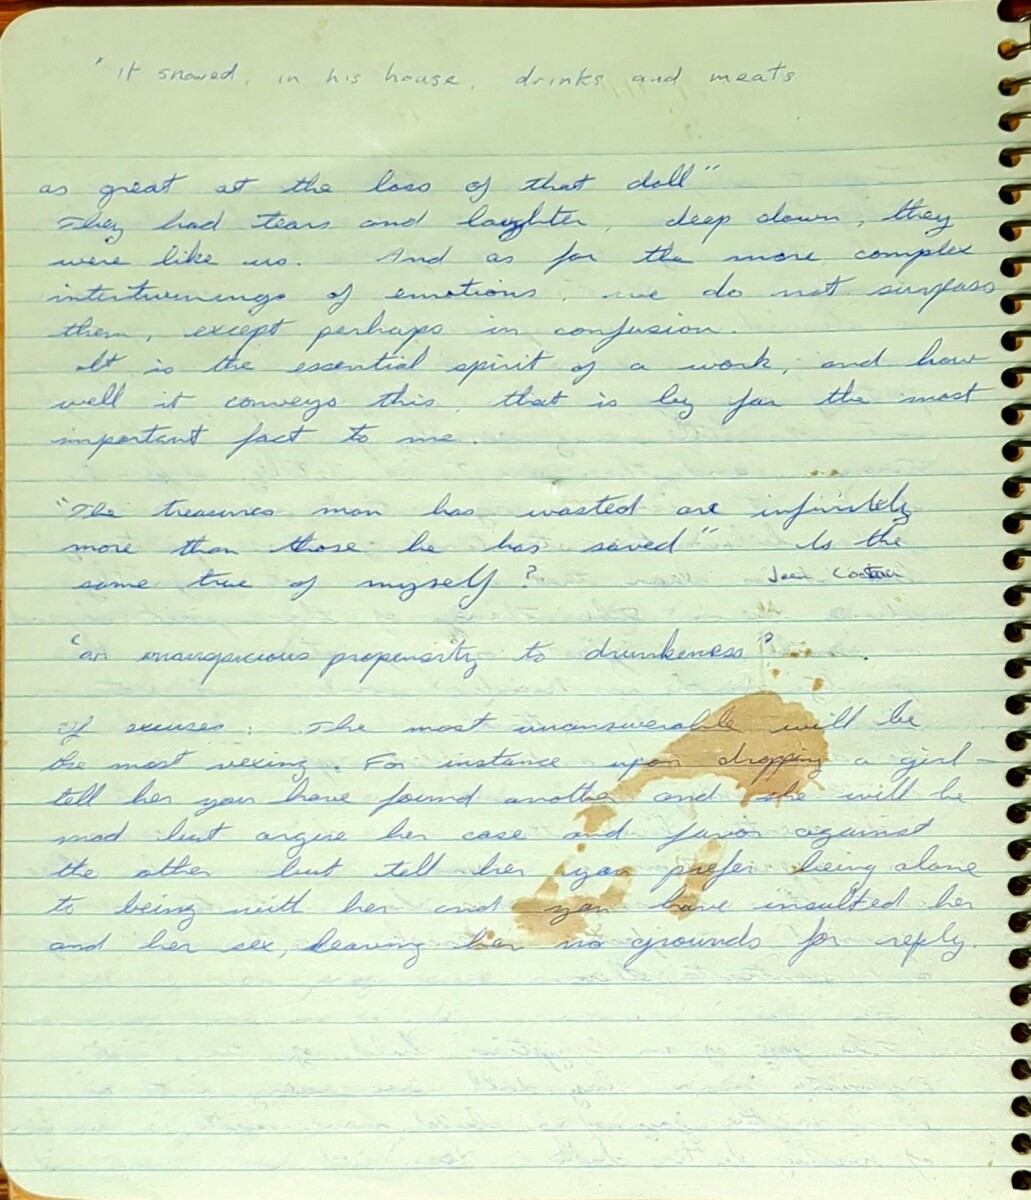 "it snowed, in his house, drinks and meats
as great at the loss of that doll"
They had tears and laughter, deep down, they
were like us. And as for the more complex
intertwinings of emotions, we do not surpass
them, except perhaps in confusion.
It is the essential spirit of a work, and how
well it conveys this, that is by far the most
important fact to me.
"The treasures man has wasted are infinitely
more than those he has saved" Is the
same true of myself? Jean Cocteau
"an inauspicious propensity to drunkeness"?
Of excuses: The most unanswerable will be
the most vexing. For instance upon dropping a girl –
tell her you have found another and she will be
mad but argue her case and favor against
the other but tell her you prefer being alone
to being with her and you have insulted her
and her sex, leaving her no grounds for reply.